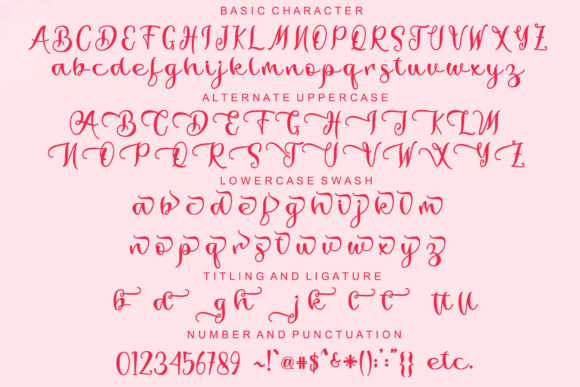 BASIC CHARACTER
ABCDEFGHIJKLMNOPQRSTUVWXYZ
abcdefghijklmnopqrstuvwxyz
ALTERNATE UPPERCASE
ABCDEFGHIJKLM
NOPQRSTUVWXYZ
LOWERCASE SWASH
abcdefghijklm
nopqrstuvwxyz
TITLING AND LIGATURE
b d gh jk c c tt
NUMBER AND PUNCTUATION
0123456789 ~!`@#$^&*():;"{} etc.